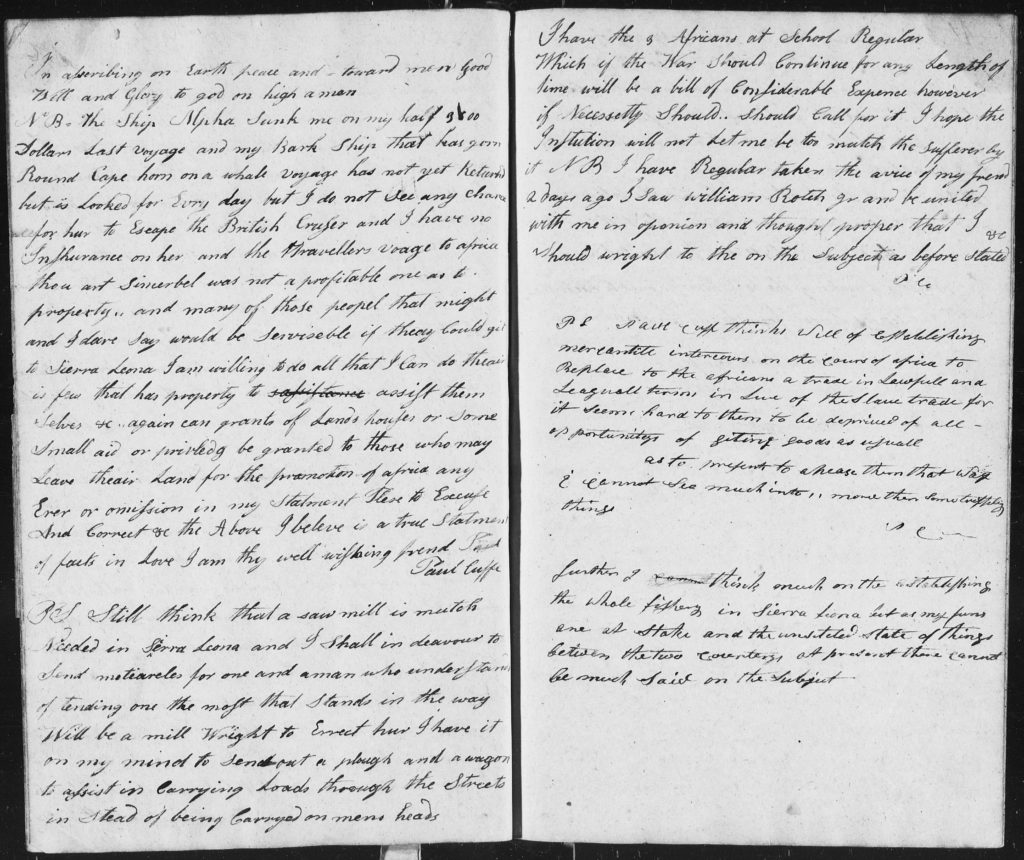 In asscribing on Earth peace and toward men Good
Will and Glory to god on high amen
NB The Ship Alpha Sunk me on my half 3000
Dollars Last Voyage and my Bark Ship that has gorn
Round Cape horn on a whale Voyage has not yet Returnd
but is Looked for Evry day but I do not See any chance
for hur to Escape the British Cruser and I have no
Inshurance on her and the thravellers Voage to africa
thou art Simerbel was not a profitable one as to
property .. and many of those peopel that might
and I dare Say would be Servisable if theay Could git
to Sierra Leona I am willing to do all that I Can do theair
is few that has property to assist them
Selves &c .. again can grants of Lands houses or Some
Small aid or privledg be granted to those who may
Leave theair Land for the promotion of africa any
Erer or omission in my Statment Plese to Excuse
And Correct &c the Above I beleve is a true Statment
of facts in Love I am thy well wishing frend
Paul Cuffe
PS Still think that a saw mill is mutch
Needed in Serra Leona and I Shall in deavour to
Send meteareles for one and a man who understans
of tending one the most that Stands in the way
Will be a mill Wright to Errect hur I have it
on my mind to send out a plough and a wagon
to assist in Carrying Loads through the Streets
in Stead of being Carryed on mens heads
I have the 3 Africans at School Regular
Which if the War Should Continue for any Length of
time will be a bill of Considerable Expence however
if Necessetty Should .. Should Call for it I hope the
Instution will not Let me be too mutch the Sufferer by
it NB I have Regular taken the avice of my frend
2 Days ago I Saw william Rotch Jr and he united
with me in oponion and thought proper that I &c
Should wright to the on the Subject as before Stated
P C
PS Paul Cuff thinks Sill of Establishing
mercantile intercours on the cours of africa to
Replace to the africans a trade in Lawfull and
Leaguall terms in Lue of the Slave trade for
it Seems hard to them to be deprived of all
opportunitys of giting goods as usuall
as to presents to apease them that Way
I cannot Sea much into .. more then Some treffeling
things
P C
further I think much on the astableshing
the whale fishery in Sierra Leona but as my funs
are at Stake and the unsetled State of things
betwen the two Counterys at present there cannot
be much Said on the Subject